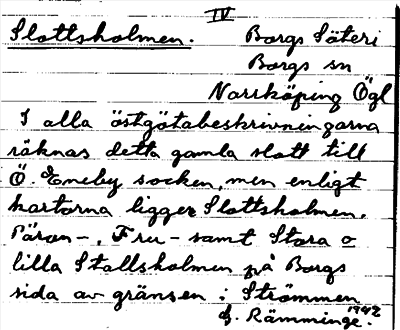 IV
Slottsholmen. Borgs Säteri
Borgs sn
Norrköping Ögl
I alla östgötabeskrivningarna
räknas detta gamla slott till
Ö. Eneby socken, men enligt
kartorna ligger Slottsholmen,
Päron-, Fru- samt Stora o
lilla Stallsholmen på Borgs
sida av gränsen i Strömmen
G. Rämminge. 1942